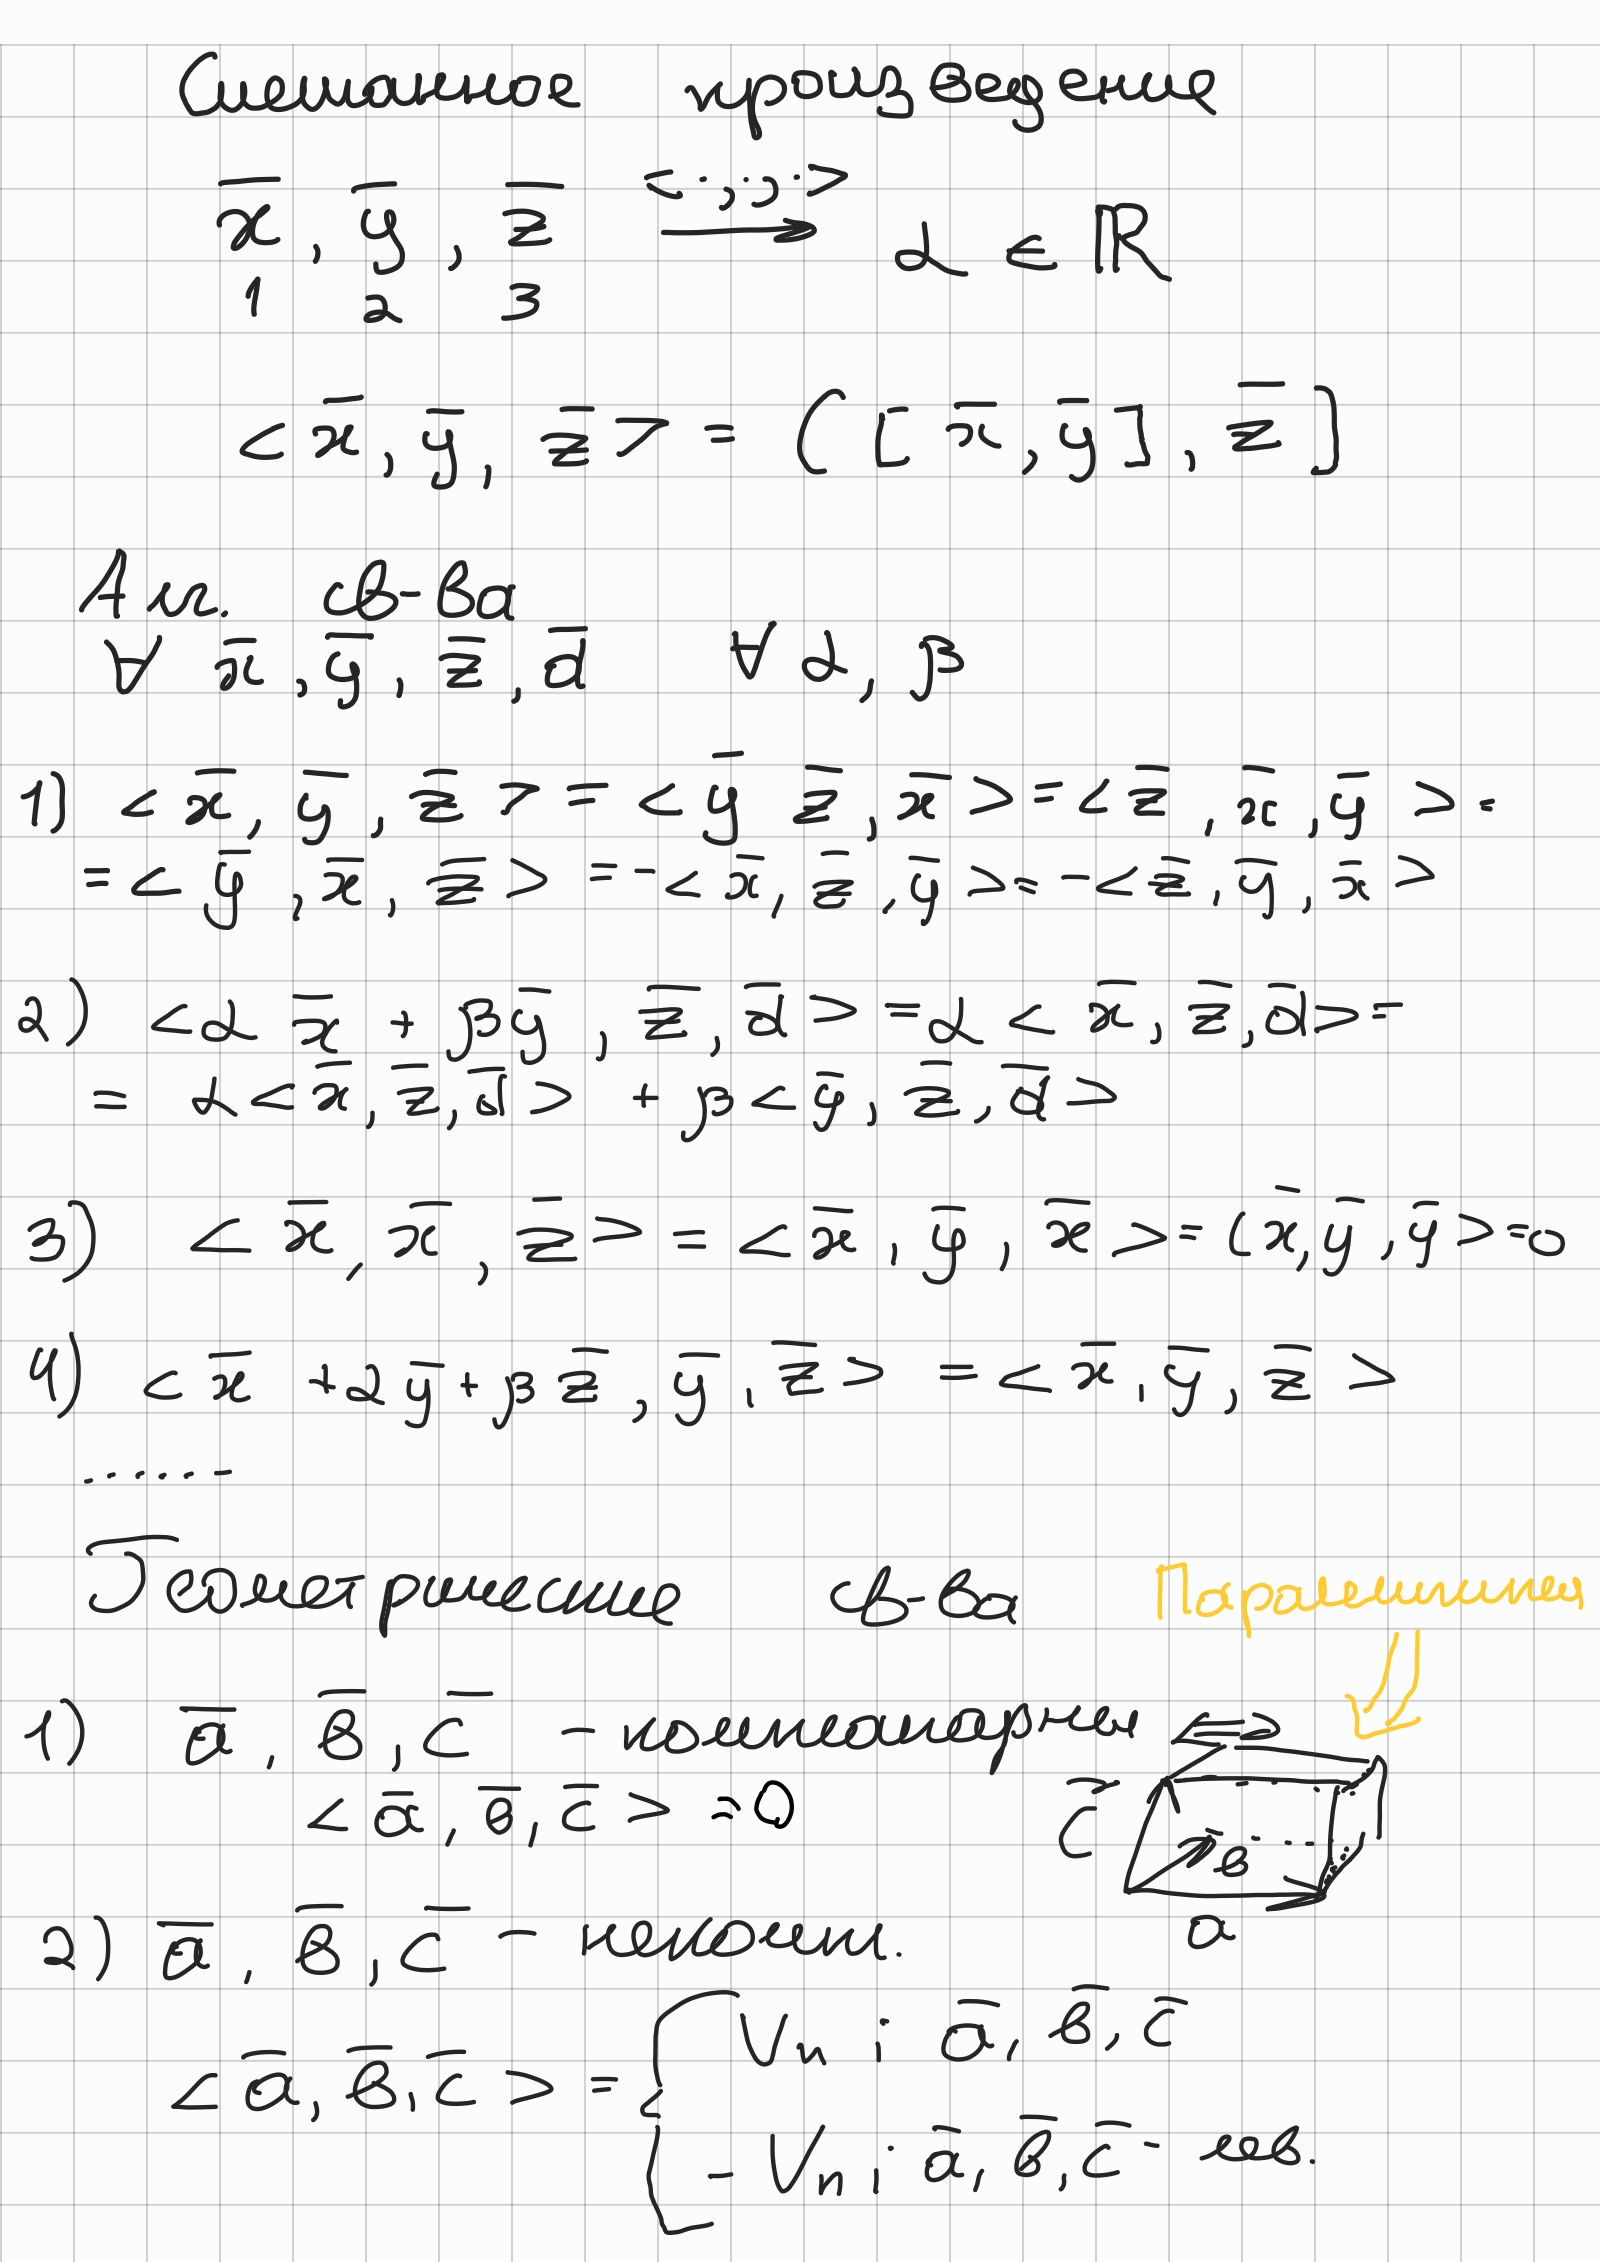 Смешанное произведение
x̅, y̅, z̅ <·,·,·> → α ∈ ℝ
1 2 3
<x̅, y̅, z̅> = ([x̅, y̅], z̅]
Алг. св-ва
∀ x̅, y̅, z̅, d̅ ∀ α, β
1) <x̅, y̅, z̅> = <y̅ z̅, x̅> = <z̅, x̅, y̅> =
= <y̅, x̅, z̅> = -<x̅, z̅, y̅> = -<z̅, y̅, x̅>
2) <α x̅ + βy̅, z̅, d̅> = α <x̅, z̅, d̅> =
= α<x̅, z̅, d̅> + β<y̅, z̅, d̅>
3) <x̅, x̅, z̅> = <x̅, y̅, x̅> = (x̅, y̅, y̅> = 0
4) <x̅ + αy̅ + βz̅, y̅, z̅> = <x̅, y̅, z̅>
.......
Геометрические св-ва
Параллелепипед
1) a̅, в̅, c̅ - компланарны <=>
<a̅, в̅, c̅> = 0
c̅
в
a
2) a̅, в̅, c̅ - некомпл.
<a̅, в̅, c̅> = { Vп ; a̅, в̅, c̅
- Vп ; a̅, в̅, c̅ - лев.